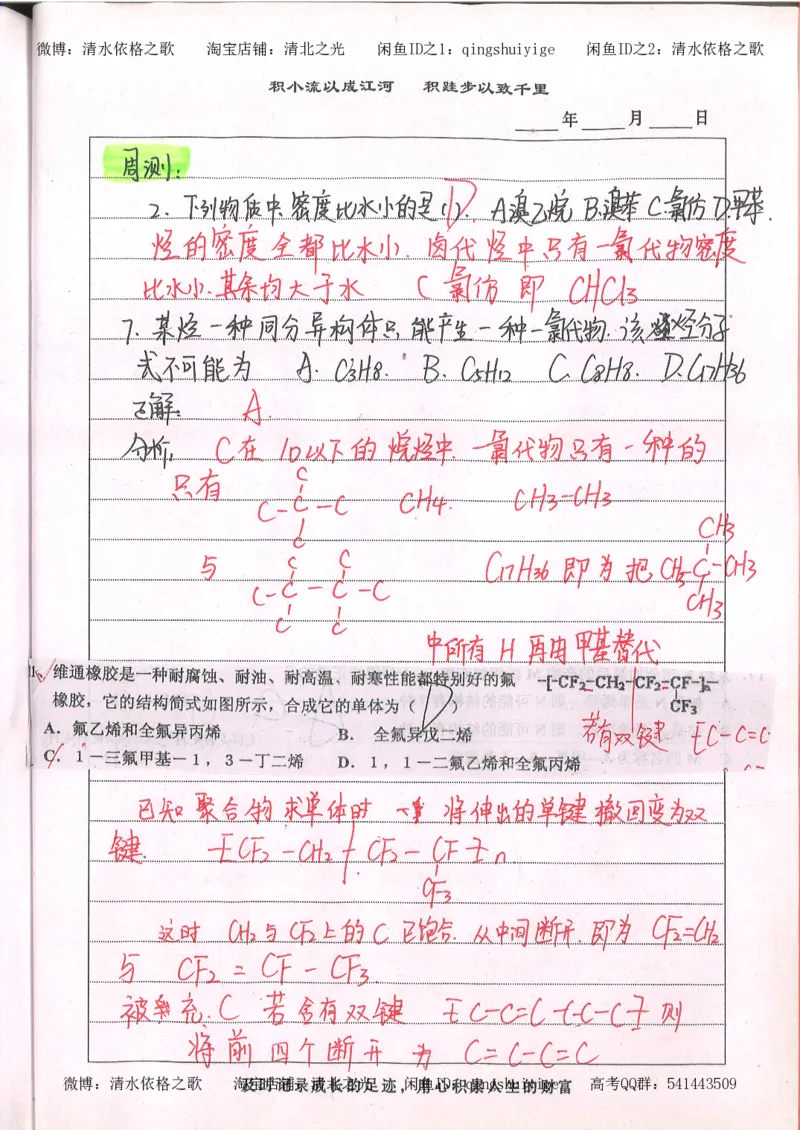 微博：清水依格之歌 淘宝店铺：清北之光 闲鱼ID之1：qingshuiyige 闲鱼ID之2：清水依格之歌
积小流以成江河 积跬步以致千里
____年____月____日
周测：
2. 下列物质中密度比水小的是( ). D A溴乙烷 B.溴苯 C.氯仿 D.甲苯.
烃的密度全都比水小. 卤代烃中只有一氯代物密度
比水小.其余均大于水 C 氯仿 即 CHCl3
7. 某烃一种同分异构体只能产生一种一氯代物.该烃分子
式不可能为 A. C3H8. B. C5H12 C. C8H8. D. C17H36
解: A.
分析: C在10以下的烷烃中.一氯代物只有一种的
只有 C-C-C CH4. CH3-CH3
C
C
与 C-C-C-C C17H36 即为把 CH3-C-CH3
C C
C C
CH3
CH3
中所有H再由甲基替代
11. 维通橡胶是一种耐腐蚀、耐油、耐高温、耐寒性能都特别好的氟 -[-CF2-CH2-CF2-CF-]n
橡胶，它的结构简式如图所示，合成它的单体为（ CF3
若有双键 [C-C=C
A．氟乙烯和全氟异丙烯 B． 全氟异戊二烯
C．1－三氟甲基－1，3－丁二烯 D．1，1－二氟乙烯和全氟丙烯
已知聚合物求单体时 将伸出的单键撤回变为双
键. -[CF2-CH2-CF2-CF-]n
CF3
这时 CH2与CF2上的C已饱合.从中间断开.即为 CF2=CH2
与 CF2=CF-CF3
补充: C 若含有双键 [C-C=C-C-C-C] 则
将前四个断开为 C=C-C=C
微博：清水依格之歌 淘宝店铺：清北之光 闲鱼ID：qingshuiyige 高考QQ群：541443509
及时记录成长的足迹，用心积累人生的财富